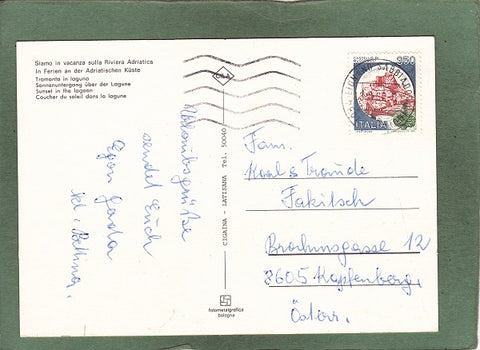 Siamo in vacanza sulla Riviera Adriatica
In Ferien an der Adriatischen Küste
Tramonto in laguna
Sonnenuntergang über der Lagune
Sunset in the lagoon
Coucher du soleil dans la lagune
Urlaubsgrüße
sendet Euch
Egon Gerda
kl. Bettina.
CHIAINA - LATISANA Tel. 50040
fotometalgrafica
bologna
350
ITALIA
Fam.
Karl & Traude
Fakitsch
Brochusgasse 12
8605 Kapfenberg,
Österr.